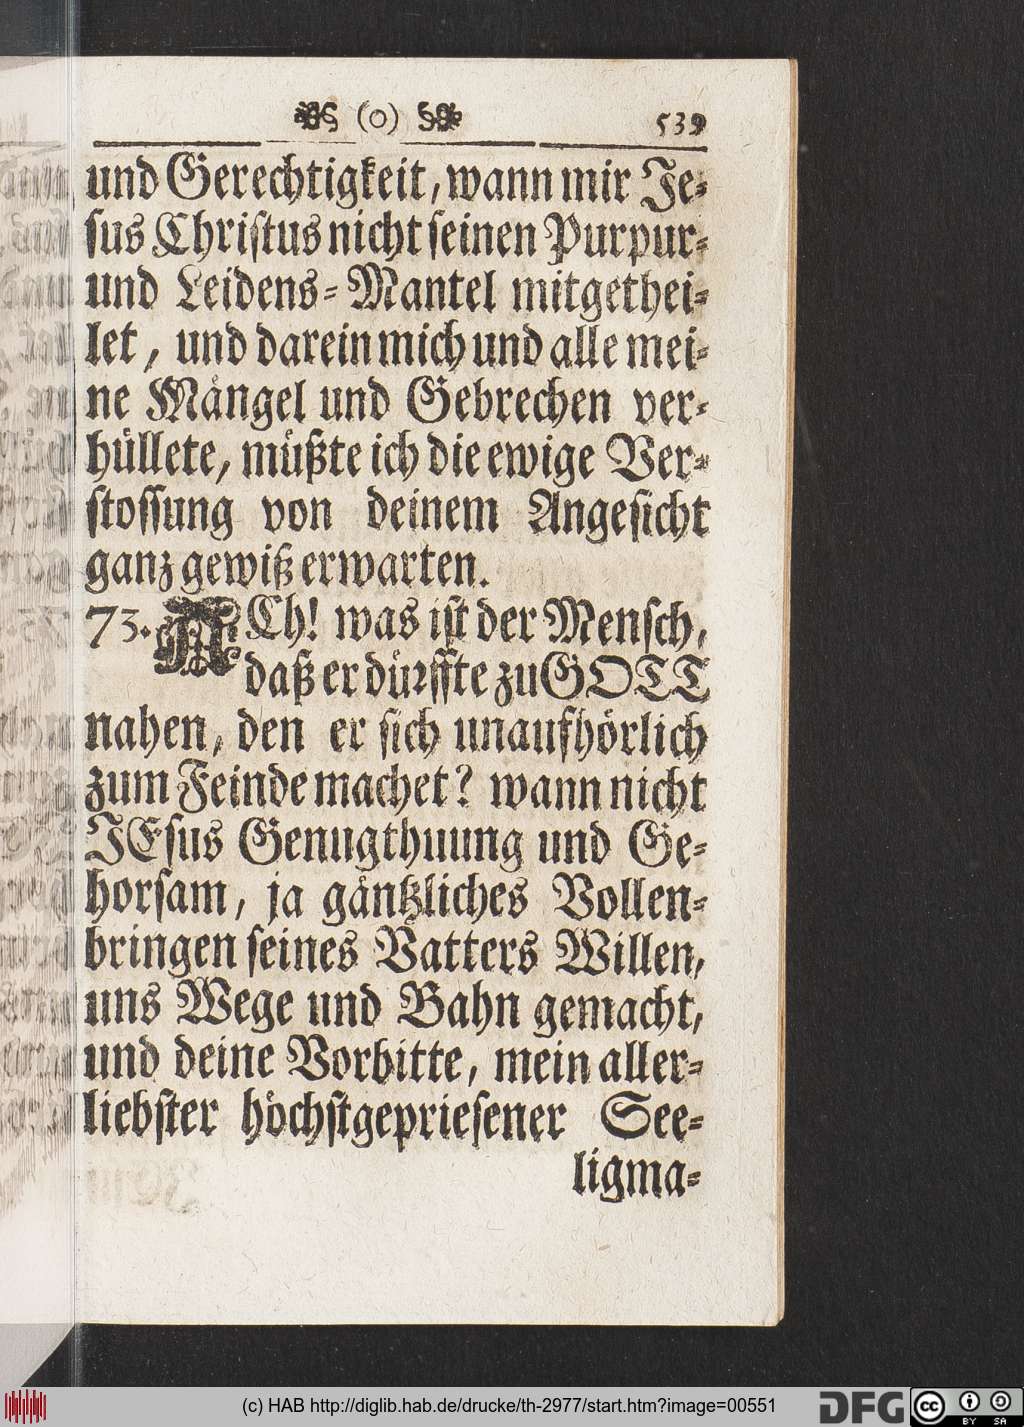 (o) 539
und Gerechtigkeit, wann mir Je-
sus Christus nicht seinen Purpur-
und Leidens-Mantel mitgethei-
let, und darein mich und alle mei-
ne Mängel und Gebrechen ver-
hüllete, müßte ich die ewige Ver-
stossung von deinem Angesicht
ganz gewiß erwarten.
73. ACh! was ist der Mensch,
daß er dürffte zu GOTT
nahen, den er sich unaufhörlich
zum Feinde machet? wann nicht
JEsus Genugthuung und Ge-
horsam, ja gäntzliches Vollen-
bringen seines Vatters Willen,
uns Wege und Bahn gemacht,
und deine Vorbitte, mein aller-
liebster höchstgepriesener See-
ligma-
(c) HAB http://diglib.hab.de/drucke/th-2977/start.htm?image=00551
DFG cc BY SA